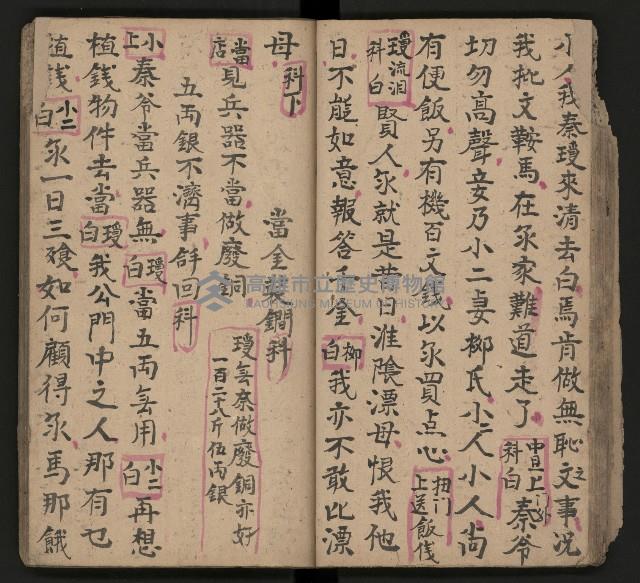 小人我秦瓊來清去白焉肯做無恥之文事况
我批文鞍馬在家難道走了中旦上门外科白秦爷
切勿高聲妾乃小二妻柳氏小二人小人尚
有便飯另有機百文錢以買点心扭门上送飯伐
瓊流泪科白賢人就是昔日淮陰漂母恨我他
日不能如意報答千金柳白我亦不敢比漂
母科下
當金裝鐧科
當店見兵器不當做廢銅瓊無奈做廢銅亦好一百二十八斤伍両銀
五両銀不濟事回科
小上秦爷當兵器無瓊白當五両無用小二白再想
值錢物件去當瓊白我公門中之人那有乜
值錢小二白一日三飱如何顧得馬那餓
高雄市立歷史博物館
KAOHSIUNG MUSEUM OF HISTORY